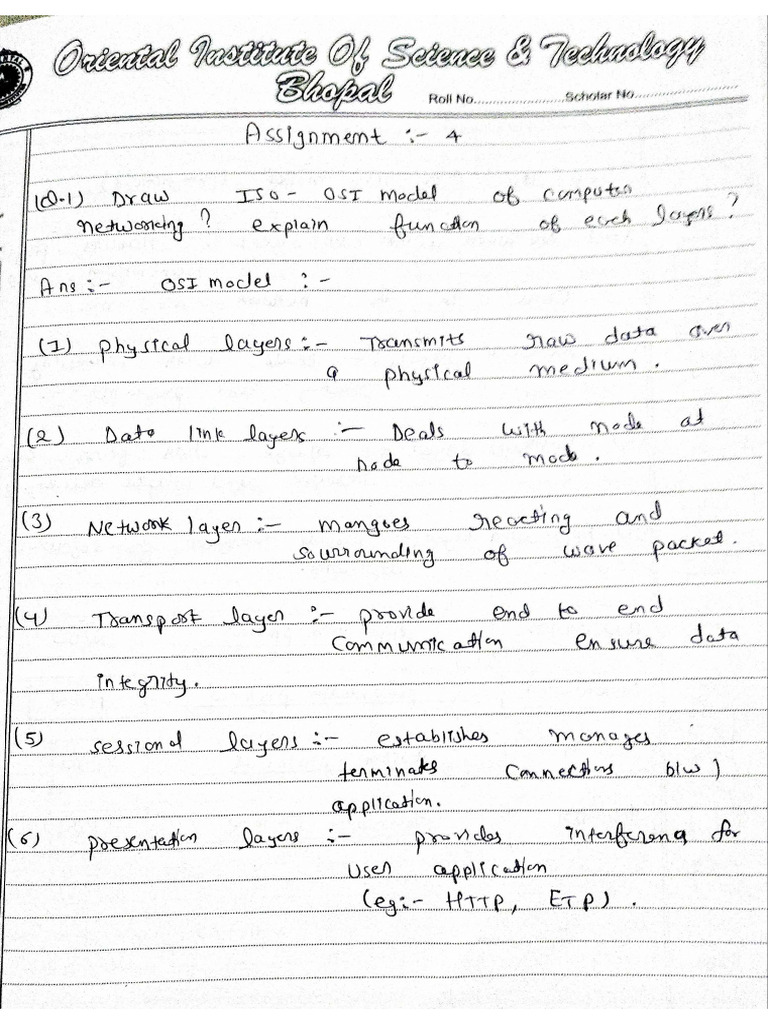 Oriental Institute Of Science & Technology
Bhopal
Roll No. Scholar No.
Assignment :- 4
(Q.1) Draw ISO - OSI model of computer
networking? explain function of each layers?
Ans :- OSI model :-
(1) Physical layers :- Transmits raw data over
a physical medium.
(2) Data link layers :- Deals with node at
node to node.
(3) Network layer :- manges reacting and
sourrounding of wave packet.
(4) Transport layer :- provide end to end
Communication ensure data
integrity.
(5) sessional layers :- establishes manages
terminates Connections b/w
application.
(6) presentation layers :- provides interfering for
user application
(eg:- HTTP, FTP).